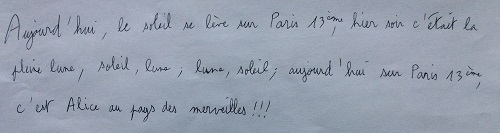 Aujourd'hui, le soleil se lève sur Paris 13ème, hier soir c'était la
pleine lune, soleil, lune ; lune, soleil ; aujourd'hui sur Paris 13ème,
c'est Alice au pays des merveilles !!!